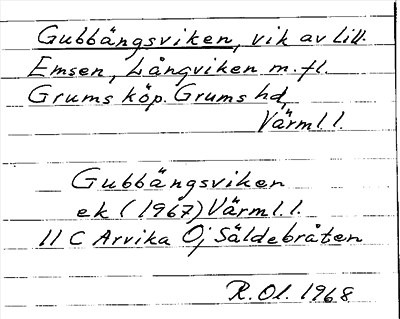 Gubbängsviken, vik av Lill.
Emsen, Långviken m.fl.
Grums köp. Grums hd,
Värml l.
Gubbängsviken
ek (1967) Värml.l.
11 C Arvika Öj Säldebråten
R.Ol. 1968